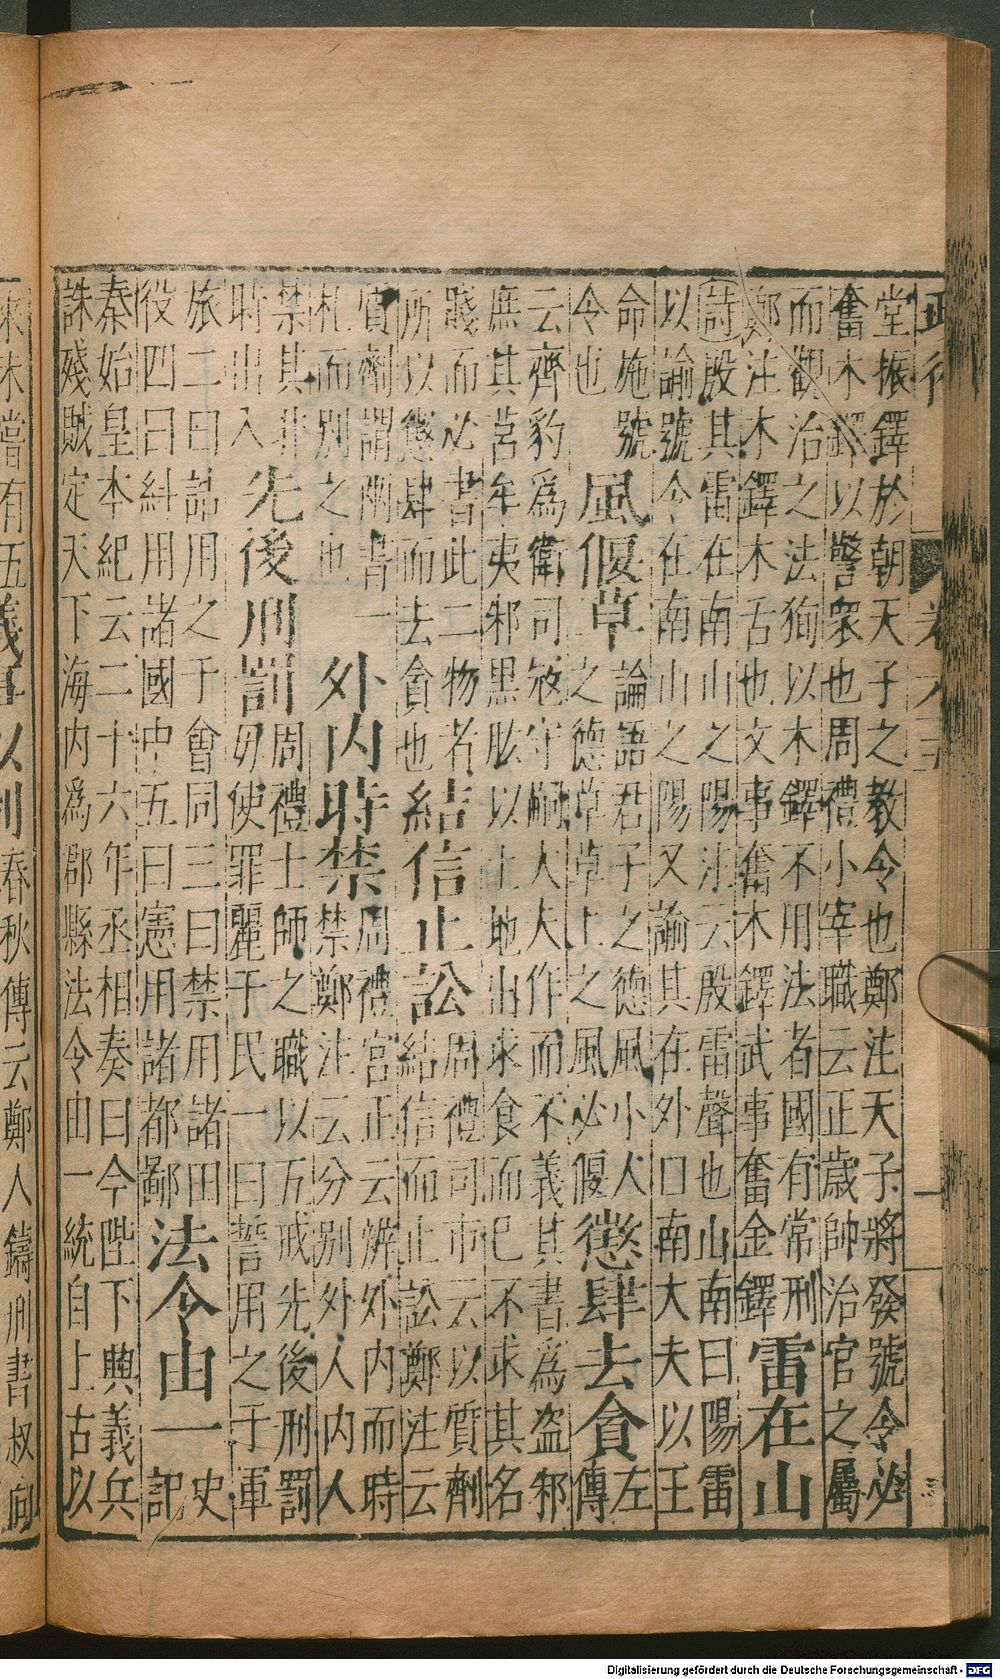 堂振鐸於朝天子之教令也鄭注天子將發號令必
奮木鐸以警眾也周禮小宰職云正歲帥治官之屬
而觀治之法狥以木鐸不用法者國有常刑
鄭注木鐸木舌也文事奮木鐸武事奮金鐸
雷在山
詩殷其雷在南山之陽注云殷雷聲也山南曰陽雷
以諭號令在南山之陽又諭其在外口南大夫以王
命施號
令也
風偃草
論語君子之德風小人
之德草草上之風必偃
懲肆去貪
左
傳
云齊豹為衛司寇守嗣大夫作而不義其書為盜邾
庶其莒牟夷邾黑肱以土地出求食而已不求其名
賤而必書此二物者
所以懲肆而去貪也
結信止訟
周禮司市云以質劑
結信而止訟鄭注云
質劑謂兩書一
札而別之也
外內時禁
周禮宮正云辨外內而時
禁鄭注云分別外人內人
禁其非
時出入
先後刑罰
周禮士師之職以五戒先後刑罰
毋使罪麗于民一曰誓用之于軍
旅二曰誥用之于會同三曰禁用諸田
役四曰糾用諸國中五曰憲用諸都鄙
法令由一
史
記
秦始皇本紀云二十六年丞相奏曰今陛下興義兵
誅殘賊定天下海內為郡縣法令由一統自上古以
來未嘗有五
義事以制
春秋傳云鄭人鑄刑書叔向
Digitalisierung gefördert durch die Deutsche Forschungsgemeinschaft - DFG